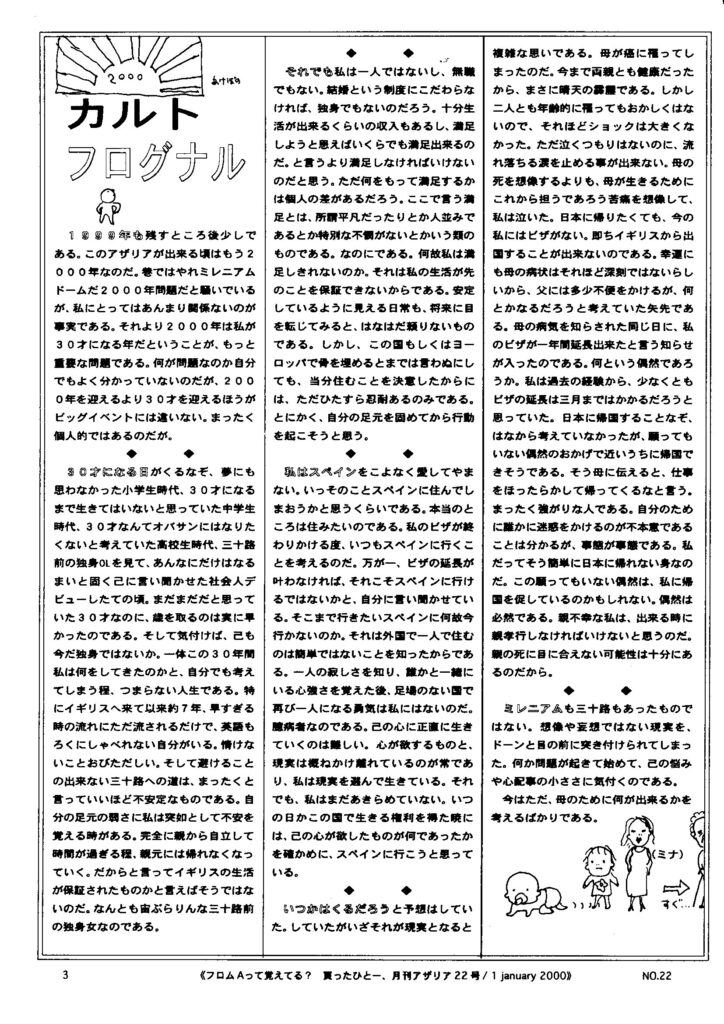 2000
あけぼの
カルト
フログナル
1999年も残すところ後少しで
ある。このアザリアが出来る頃はもう2
000年なのだ。巷ではやれミレニアム
ドームだ2000年問題だと騒いでいる
が、私にとってはあんまり関係ないのが
事実である。それより2000年は私が
30才になる年だということが、もっと
重要な問題である。何が問題なのか自分
でもよく分かっていないのだが、200
0年を迎えるより30才を迎えるほうが
ビッグイベントには違いない。まったく
個人的ではあるのだが。
◆ ◆
30才になる日がくるなぞ、夢にも
思わなかった小学生時代、30才になる
まで生きてはいないと思っていた中学生
時代、30才なんてオバサンにはなりた
くないと考えていた高校生時代、三十路
前の独身OLを見て、あんなにだけはなる
まいと固く己に言い聞かせた社会人デ
ビューしたての頃。まだまだだと思って
いた30才なのに、歳を取るのは実に早
かったのである。そして気付けば、己も
今だ独身ではないか。一体この30年間
私は何をしてきたのかと、自分でも考え
てしまう程、つまらない人生である。特
にイギリスへ来て以来約7年、早すぎる
時の流れにただ流されるだけで、英語も
ろくにしゃべれない自分がいる。情けな
いことおびただしい。そして避けること
の出来ない三十路への道は、まったくと
言っていいほど不安定なものである。自
分の足元の弱さに私は突如として不安を
覚える時がある。完全に親から自立して
時間が過ぎる程、親元には帰れなくなっ
ていく。だからと言ってイギリスの生活
が保証されたものかと言えばそうではな
いのだ。なんとも宙ぶらりんな三十路前
の独身女なのである。
◆ ◆
それでも私は一人ではないし、無職
でもない。結婚という制度にこだわらな
ければ、独身でもないのだろう。十分生
活が出来るくらいの収入もあるし、満足
しようと思えばいくらでも満足出来るの
だ。と言うより満足しなければいけない
のだと思う。ただ何をもって満足するか
は個人の差があるだろう。ここで言う満
足とは、所謂平凡だったりとか人並みで
あるとか特別な不慣がないとかいう類の
ものである。なのにである。何故私は満
足しきれないのか。それは私の生活が先
のことを保証できないからである。安定
しているように見える日常も、将来に目
を転じてみると、はなはだ頼りないもの
である。しかし、この国もしくはヨー
ロッパで骨を埋めるとまでは言わぬにし
ても、当分住むことを決意したからに
は、ただひたすら忍耐あるのみである。
とにかく、自分の足元を固めてから行動
を起こそうと思う。
◆ ◆
私はスペインをこよなく愛してやま
ない。いっそのことスペインに住んでし
まおうかと思うくらいである。本当のと
ころは住みたいのである。私のビザが終
わりかける度、いつもスペインに行くこ
とを考えるのだ。万が一、ビザの延長が
叶わなければ、それこそスペインに行け
るではないかと、自分に言い聞かせてい
る。そこまで行きたいスペインに何故今
行かないのか。それは外国で一人で住む
のは簡単ではないことを知ったからであ
る。一人の寂しさを知り、誰かと一緒に
いる心強さを覚えた後、足場のない国で
再び一人になる勇気は私にはないのだ。
臆病者なのである。己の心に正直に生き
ていくのは難しい。心が欲するものと、
現実は概ねかけ離れているのが常であ
り、私は現実を選んで生きている。それ
でも、私はまだあきらめていない。いつ
の日かこの国で生きる権利を得た暁に
は、己の心が欲したものが何であったか
を確かめに、スペインに行こうと思って
いる。
◆ ◆
いつかはくるだろうと予想はしてい
た。していたがいざそれが現実となると
複雑な思いである。母が癌に罹ってし
まったのだ。今まで両親とも健康だった
から、まさに晴天の霹靂である。しかし
二人とも年齢的に罹ってもおかしくはな
いので、それほどショックは大きくな
かった。ただ泣くつもりはないのに、流
れ落ちる涙を止める事が出来ない。母の
死を想像するよりも、母が生きるために
これから担うであろう苦痛を想像して、
私は泣いた。日本に帰りたくても、今の
私にはビザがない。即ちイギリスから出
国することが出来ないのである。幸運に
も母の病状はそれほど深刻ではないらし
いから、父には多少不便をかけるが、何
とかなるだろうと考えていた矢先であ
る。母の病気を知らされた同じ日に、私
のビザが一年間延長出来たと言う知らせ
が入ったのである。何という偶然であろ
うか。私は過去の経験から、少なくとも
ビザの延長は三月まではかかるだろうと
思っていた。日本に帰国することなぞ、
はなから考えていなかったが、願っても
いない偶然のおかげで近いうちに帰国で
きそうである。そう母に伝えると、仕事
をほったらかして帰ってくるなと言う。
まったく強がりな人である。自分のため
に誰かに迷惑をかけるのが不本意である
ことは分かるが、事態が事態である。私
だってそう簡単に日本に帰れない身なの
だ。この願ってもいない偶然は、私に帰
国を促しているのかもしれない。偶然は
必然である。親不幸な私は、出来る時に
親孝行しなければいけないと思うのだ。
親の死に目に合えない可能性は十分にあ
るのだから。
◆ ◆
ミレニアムも三十路もあったもので
はない。想像や妄想ではない現実を、
ドーンと目の前に突き付けられてしまっ
た。何か問題が起きて始めて、己の悩み
や心配事の小ささに気付くのである。
今はただ、母のために何が出来るかを
考えるばかりである。
(ミナ)
すぐ…
3 《フロムAって覚えてる? 買ったひとー、月刊アザリア22号/1 january 2000》 NO.22